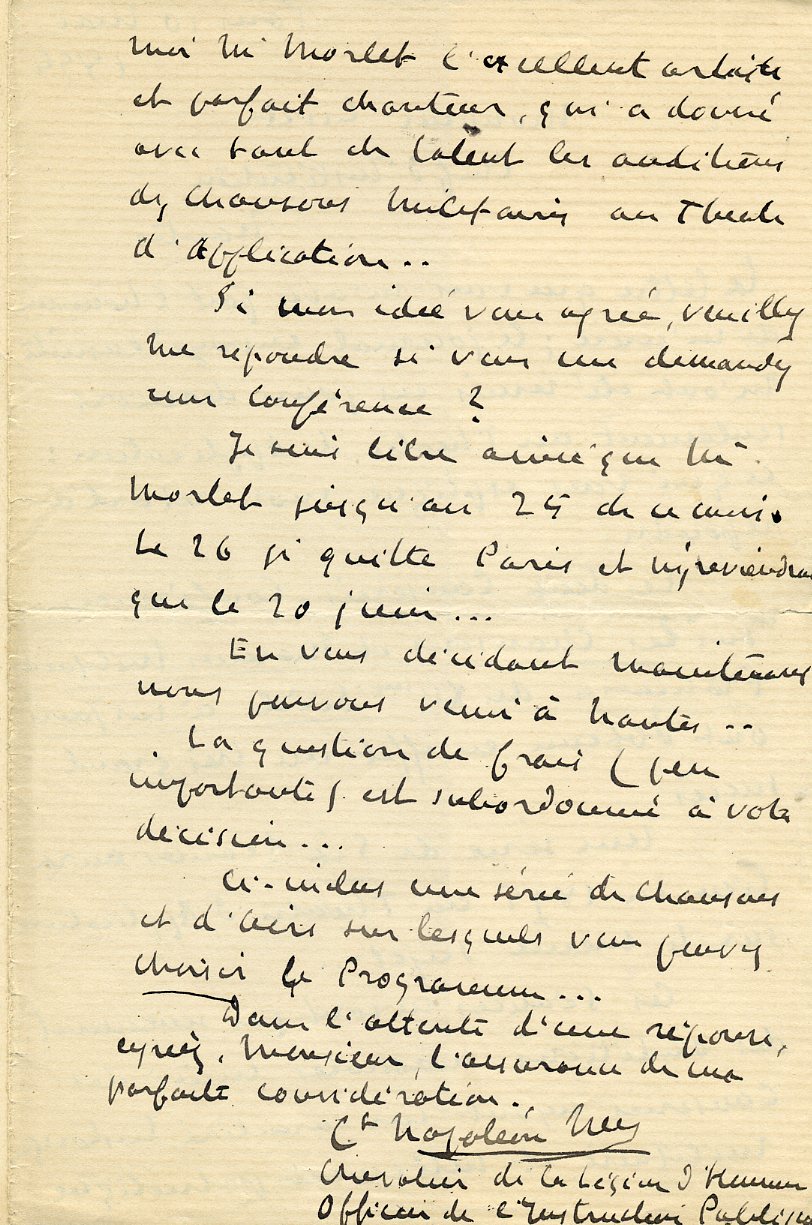 moi Mr Morlet l'excellent artiste
et parfait chanteur, qui a donné
avec tant de talent les auditions
des Chansons Militaires au Theatre
d'Application..
Si mon idée vous agrée, veuillez
me repondre si vous me demandez
une Conférence ?
Je suis libre ainsi que Mr
Morlet jusqu'au 25 de ce mois.
Le 26 je quitte Paris et n'y reviendrai
que le 20 juin...
En vous décidant maintenant
nous pouvons venir à Nantes..
La question de frais (peu
importante) est subordonné à votre
décision...
Ci-inclus une série de Chansons
et d'airs sur lesquels vous pouvez
choisir le Programme...
Dans l'attente d'une réponse,
agréez, Monsieur, l'assurance de ma
parfaite considération.
Ct Napoléon Ney
Chevalier de la Légion d'Honneur
Officier de l'Instruction Publique